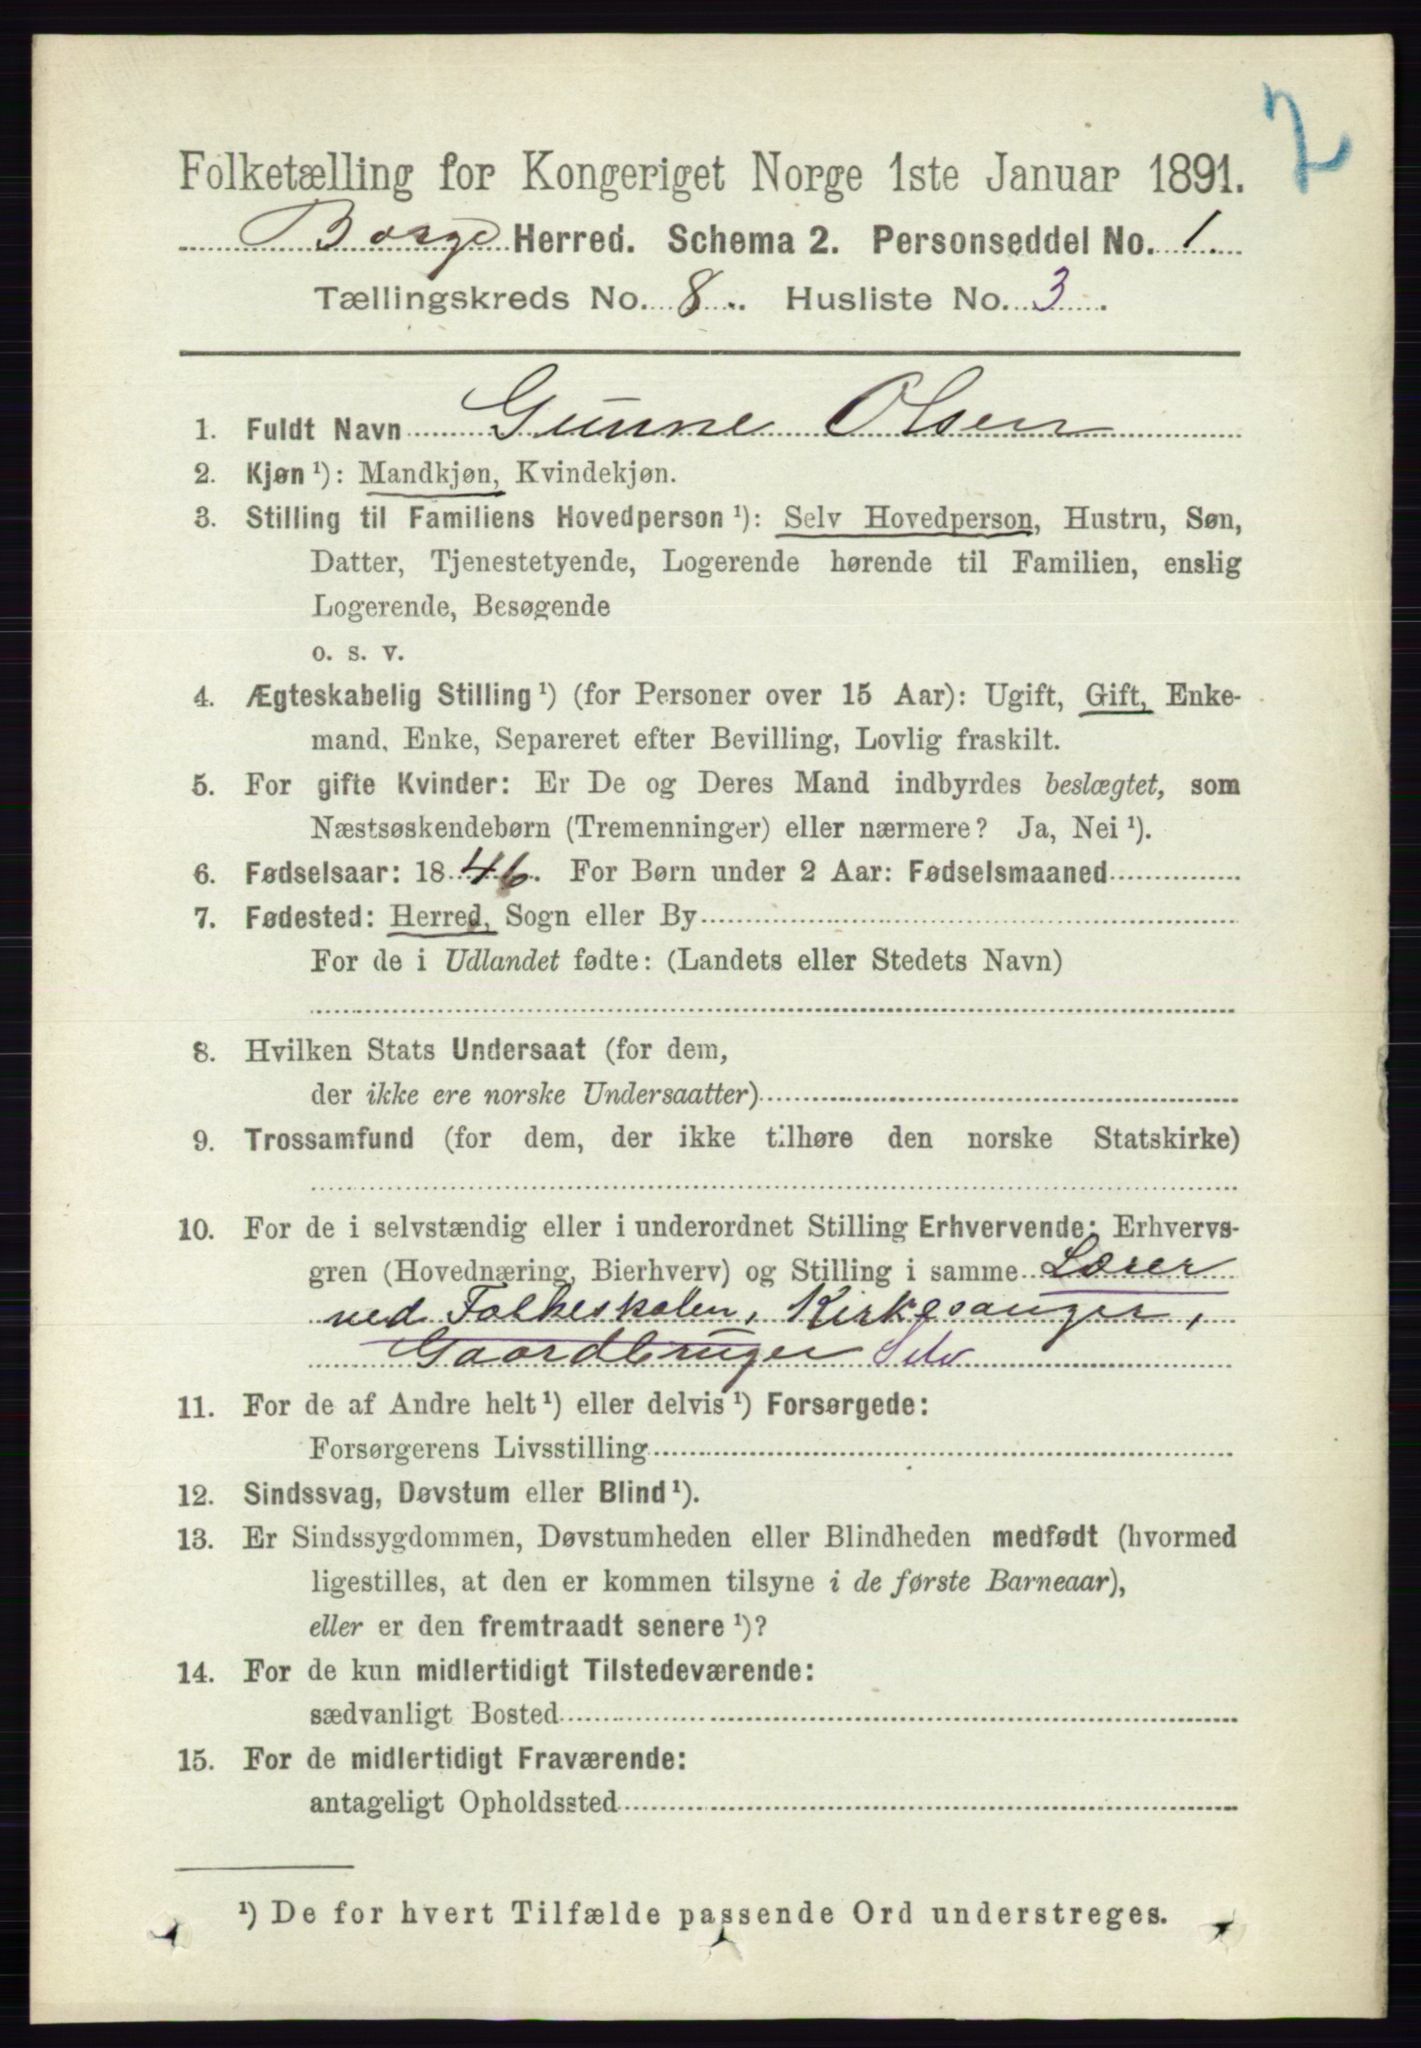 2
Folketælling for Kongeriget Norge 1ste Januar 1891.
Borge Herred. Schema 2. Personseddel No. 1.
Tællingskreds No. 8. Husliste No. 3.
1. Fuldt Navn Gunne Olsen
2. Kjøn ¹): Mandkjøn, Kvindekjøn.
3. Stilling til Familiens Hovedperson ¹): Selv Hovedperson, Hustru, Søn,
Datter, Tjenestetyende, Logerende hørende til Familien, enslig
Logerende, Besøgende
o. s. v.
4. Ægteskabelig Stilling ¹) (for Personer over 15 Aar): Ugift, Gift, Enke-
mand, Enke, Separeret efter Bevilling, Lovlig fraskilt.
5. For gifte Kvinder: Er De og Deres Mand indbyrdes beslægtet, som
Næstsøskendebørn (Tremenninger) eller nærmere? Ja, Nei ¹).
6. Fødselsaar: 1846. For Børn under 2 Aar: Fødselsmaaned
7. Fødested: Herred, Sogn eller By
For de i Udlandet fødte: (Landets eller Stedets Navn)
8. Hvilken Stats Undersaat (for dem,
der ikke ere norske Undersaatter)
9. Trossamfund (for dem, der ikke tilhøre den norske Statskirke)
10. For de i selvstændig eller i underordnet Stilling Erhvervende: Erhvervs-
gren (Hovednæring, Bierhverv) og Stilling i samme Lærer
ved Folkeskolen, Kirkesanger,
Gaardbruger Selv
11. For de af Andre helt ¹) eller delvis ¹) Forsørgede:
Forsørgerens Livsstilling
12. Sindssvag, Døvstum eller Blind ¹).
13. Er Sindssygdommen, Døvstumheden eller Blindheden medfødt (hvormed
ligestilles, at den er kommen tilsyne i de første Barneaar),
eller er den fremtraadt senere ¹)?
14. For de kun midlertidigt Tilstedeværende:
sædvanligt Bosted
15. For de midlertidigt Fraværende:
antageligt Opholdssted
¹) De for hvert Tilfælde passende Ord understreges.